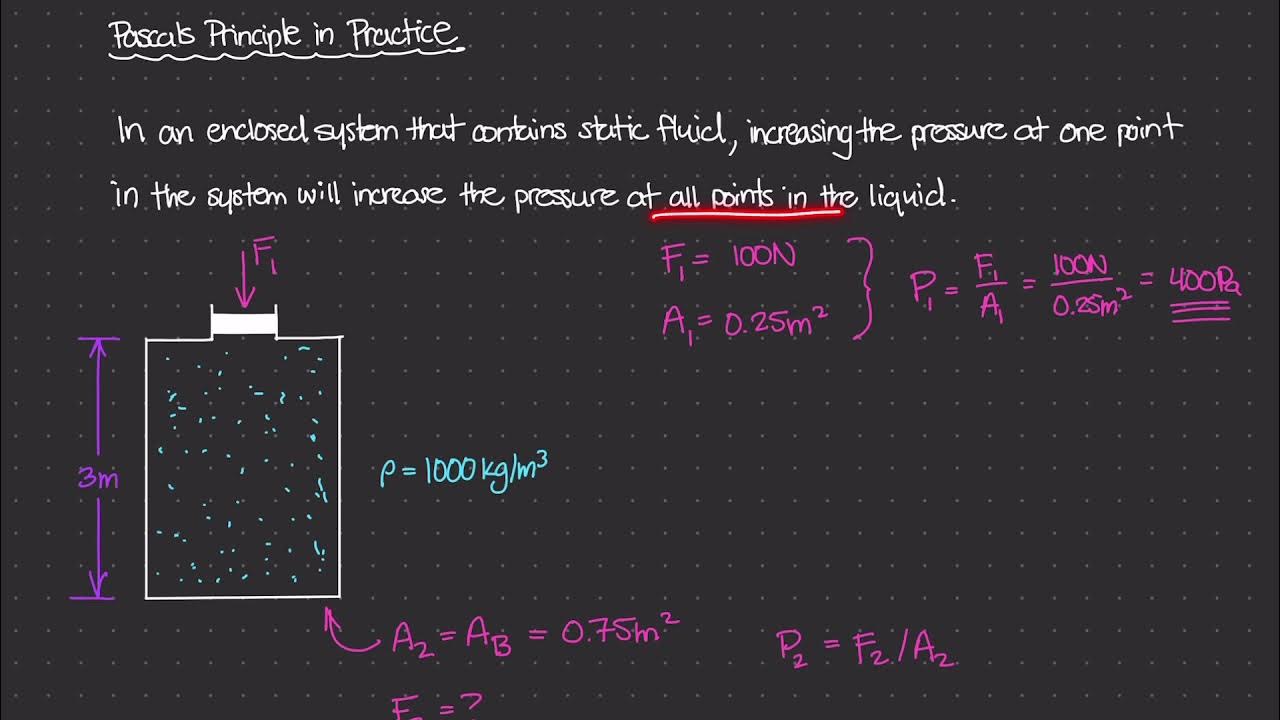 Pascals Principle in Practice
In an enclosed system that contains static fluid, increasing the pressure at one point
in the system will increase the pressure at all points in the liquid.
F₁
F₁ = 100N
A₁ = 0.25m²
P₁ = F₁/A₁ = 100N/0.25m² = 400Pa
3m
ρ = 1000 kg/m³
A₂ = A_B = 0.75m²
P₂ = F₂/A₂
F = ?